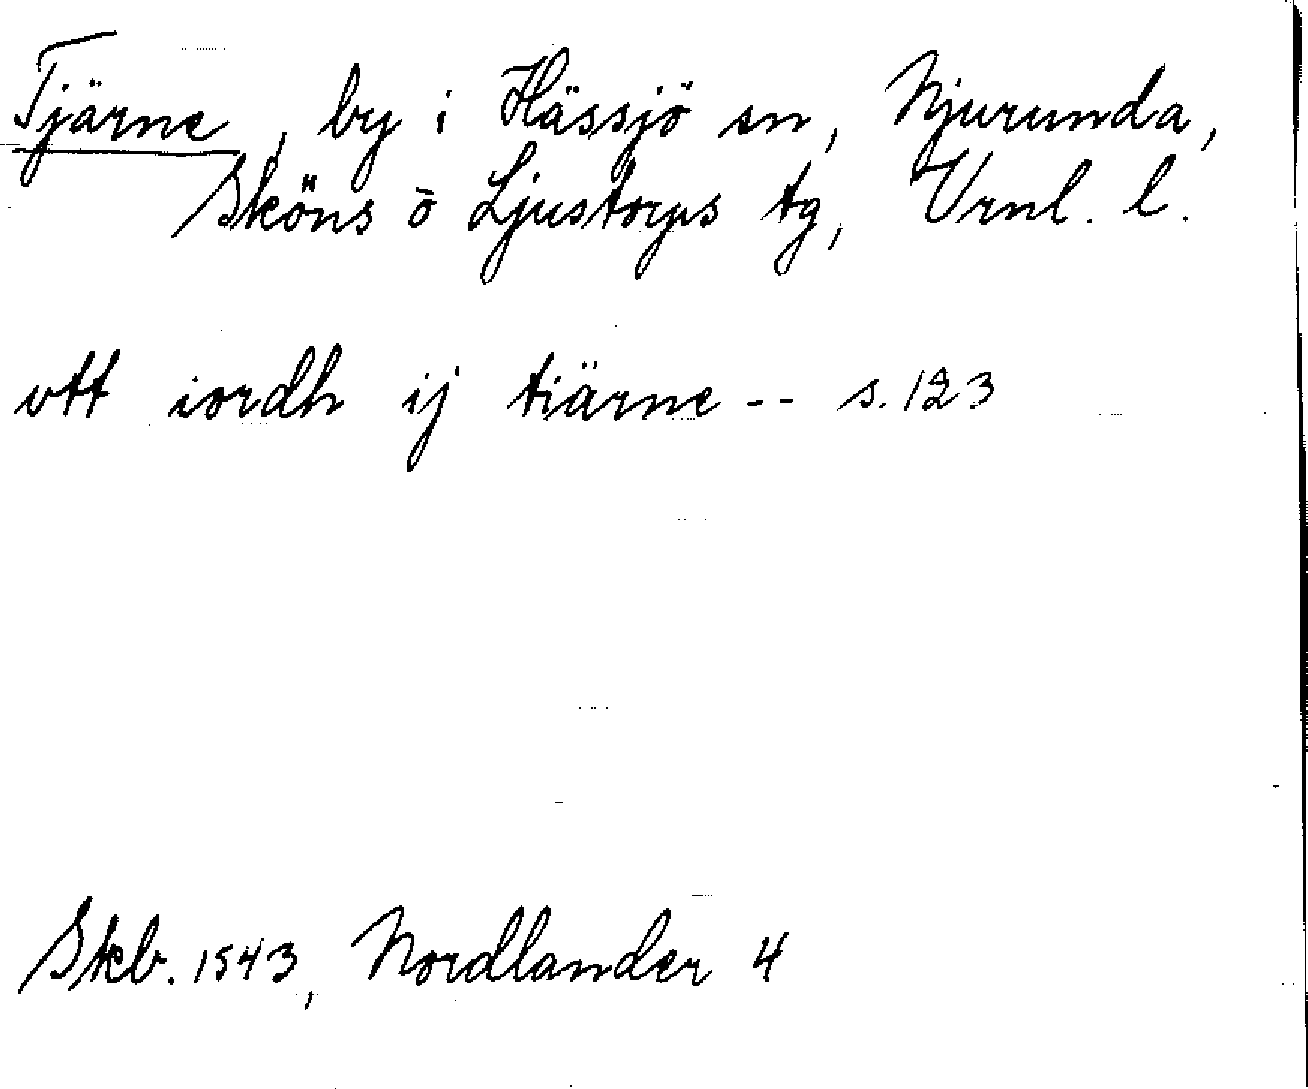 Tjärne, by i Hässjö sn, Njurunda,
Sköns o Ljustorps tg, Vrnl. l.
vtt iordh ij tiärne -- s. 123
Skb. 1543, Nordlander 4